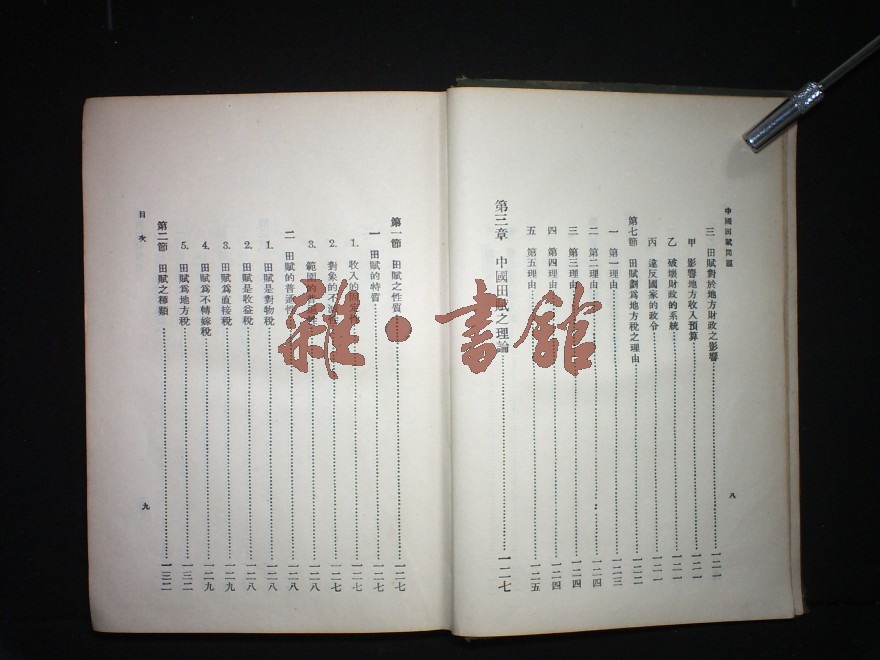 中國田賦問題
三 田賦對於地方財政之影響……一二一
甲 影響地方收入預算……一二一
乙 破壞財政的系統……一二一
丙 違反國家的政令……一二一
第七節 田賦劃為地方稅之理由……一二二
一 第一理由……一二三
二 第二理由……一二四
三 第三理由……一二四
四 第四理由……一二四
五 第五理由……一二五
第三章 中國田賦之理論……一二七
八
第一節 田賦之性質……一二七
一 田賦的特質……一二七
1. 收入的固定性……一二七
2. 對象的不……一二七
3. 範圍的普……一二八
二 田賦的普通性……一二八
1. 田賦是對物稅……一二八
2. 田賦是收益稅……一二八
3. 田賦爲直接稅……一二九
4. 田賦爲不轉嫁稅……一二九
5. 田賦爲地方稅……一三二
第二節 田賦之種類……一三二
目次
九
雜·書館